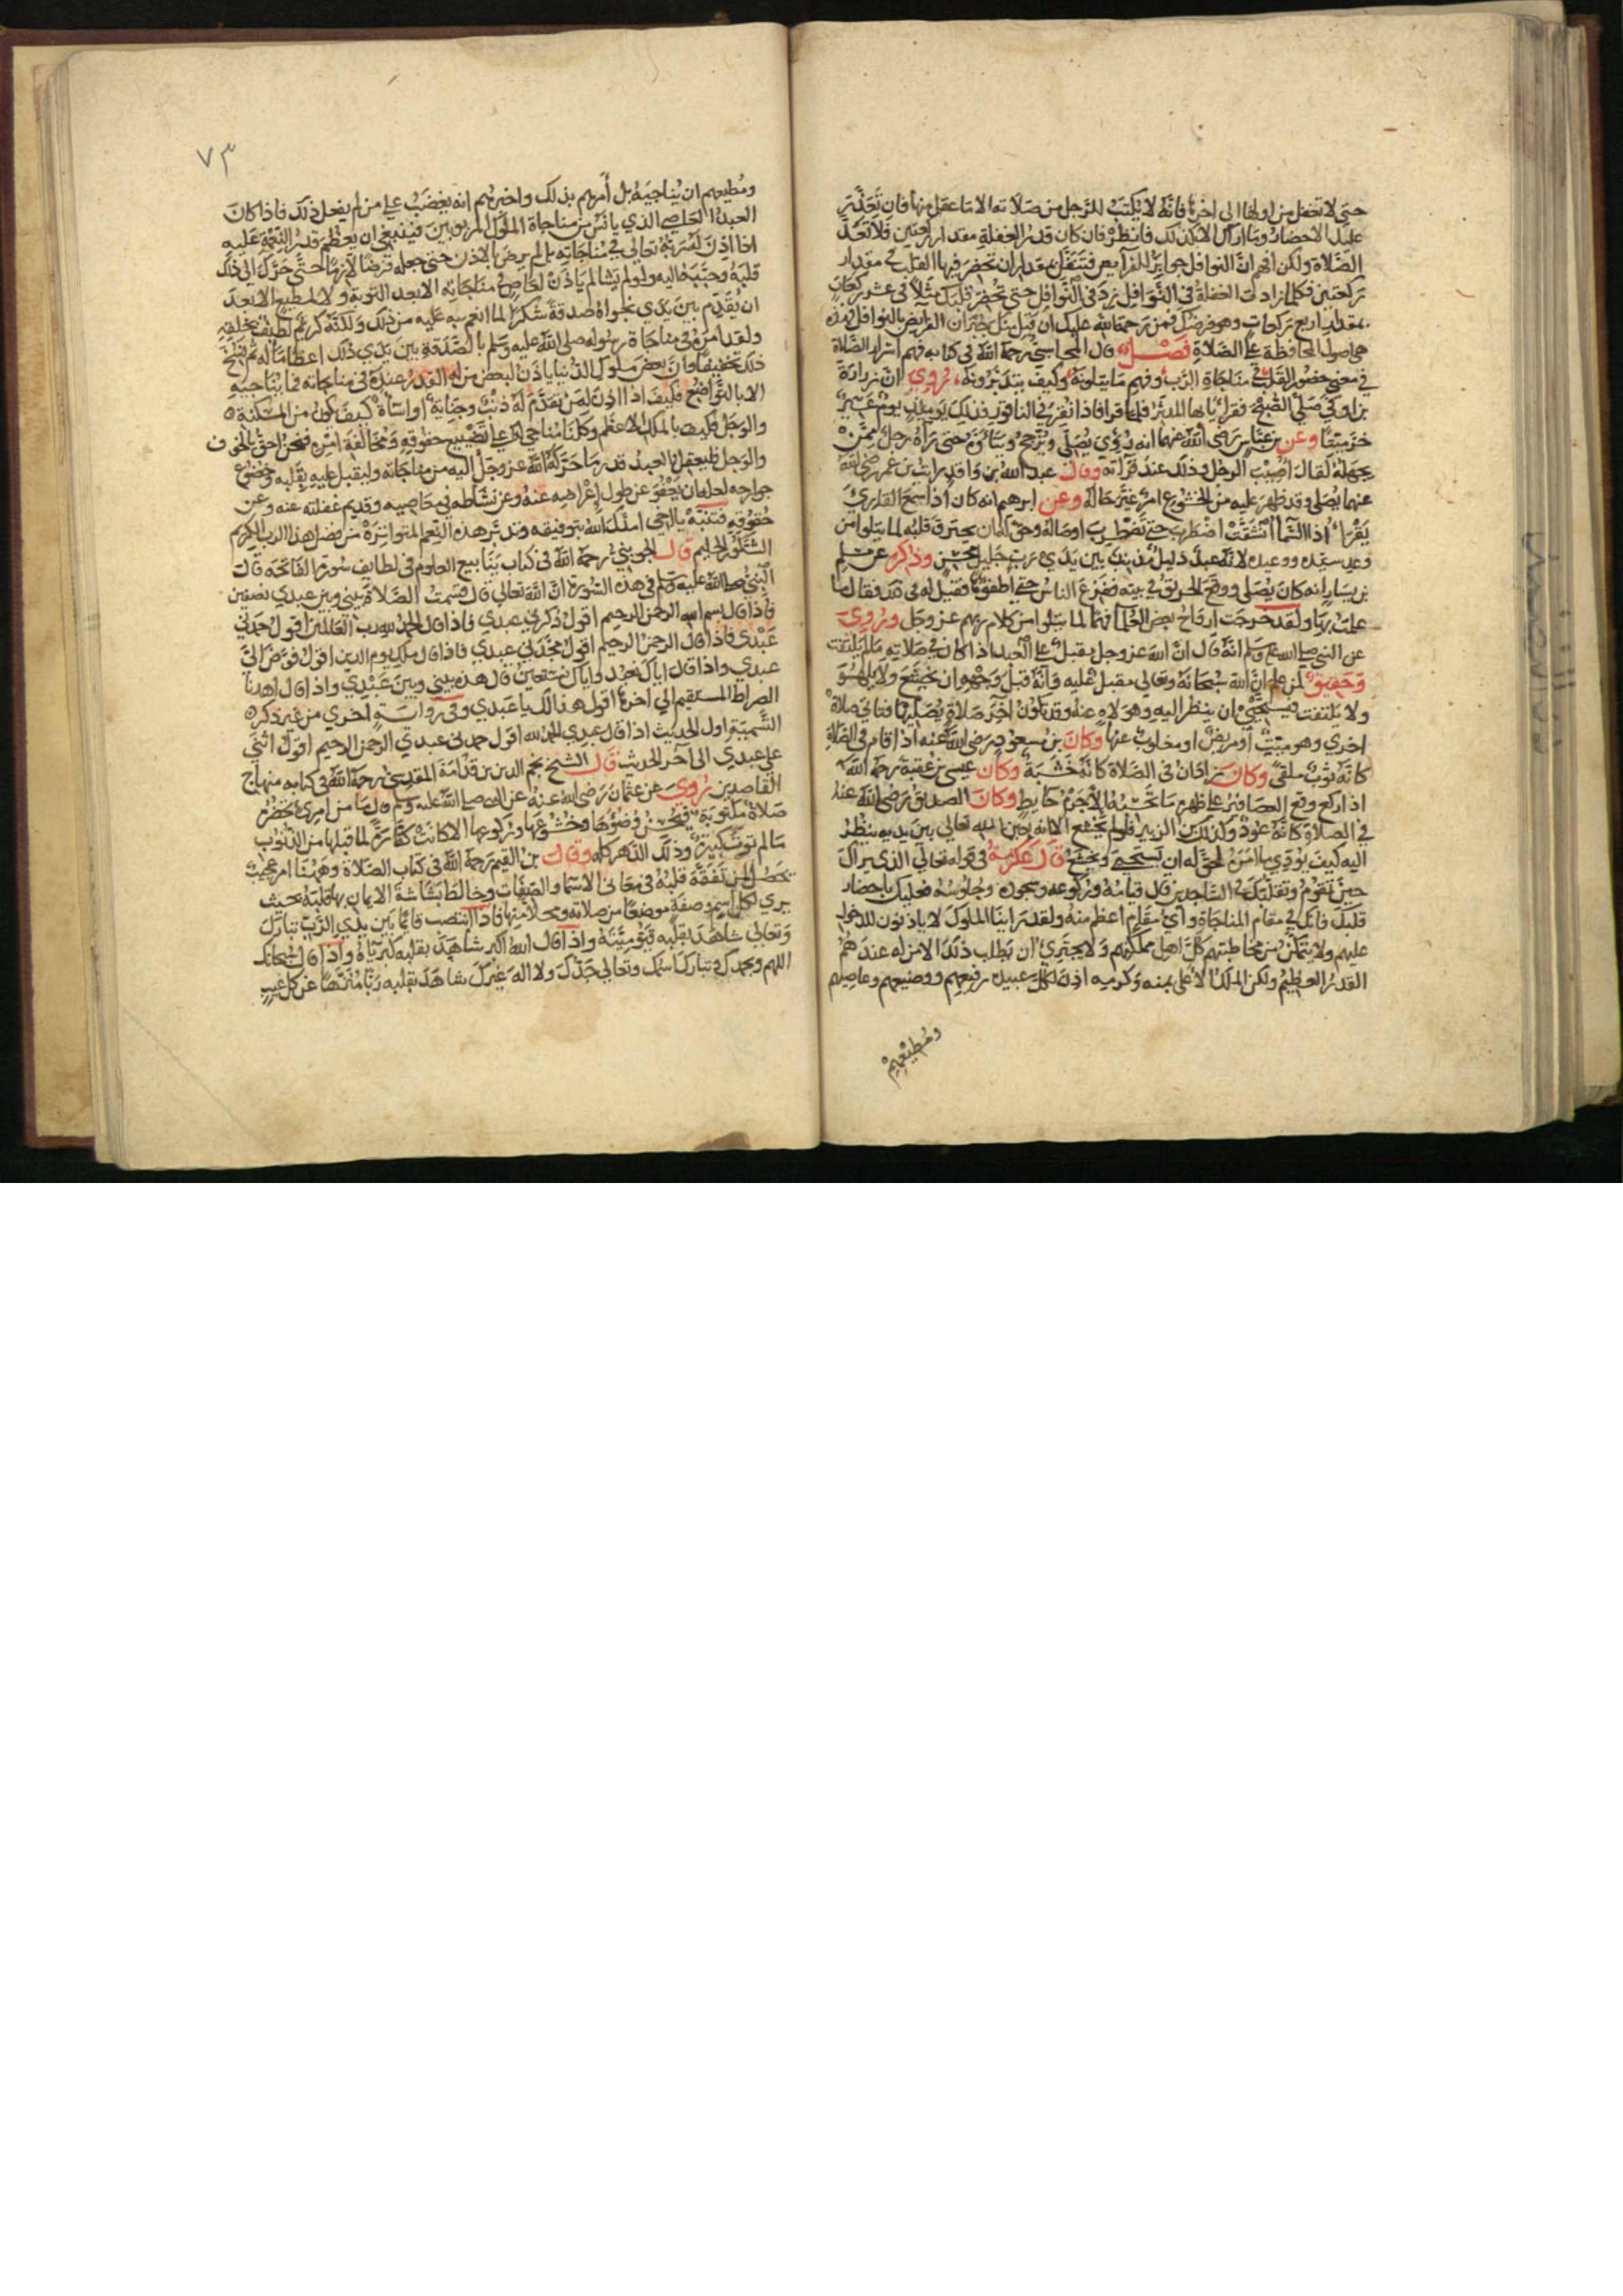 حتى لا تغفل من اولها الى اخرها فانه لا يكتب للرجل من صلاته الا ما عقل منها فان تعذر
عليك الاحضار وما اراك الا كذلك فانظر فان كان قدر الغفلة مقدار ركعتين فلا تعد
الصلاة ولكن افهم ان النوافل جوابر الفرايض فتنفل بمقدار ان تحضر فيها القلب في مقدار
ركعتين فكلما زادت الغفلة في النوافل زد في النوافل حتى تحضر قلبك مثلا في عشر ركعات
بمقدار اربع ركعات وهو فرضك فمن رحمة الله عليك ان قبل منك جبران الفرايض بالنوافل فهذه
هي اصول المحافظة على الصلاة فصل قال المحاسبي رحمه الله في كتابه فهم اسرار الصلاة
في معنى حضور القلب في مناجاة الرب وفهم ما يتلونه وكيف يتدبرونه روي ان زرارة
بن اوفى صلى الصبح فقرأ يا ايها المدثر فلما قرا فاذا نقر في الناقور فذلك يوميذ يوم عسير
خر ميتا وعن بن عباس رضي الله عنهما انه روي يصلي ويترجح ويتأوه حتى لو رآه رجل ممن
يجهله لقال اصيب الرجل وذلك عند قرآته وقال عبد الله بن واقد رايت بن عمر رضي الله
عنهما يصلي وقد ظهر عليه من الخشوع امر غير حاله وعن ابرهيم انه كان اذا سمع القاري
يقرأ اذا السمآ انشقت اضطرب حتى تضطرب اوصاله وحق لمن يحترق قلبه لما يتلوا من
وعد سيده ووعيده لانه عبد ذليل مذنب بين يدي رب جليل وذكر عن مسلم
بن يسار انه كان يصلي ووقع الحريق في بيته ففزع الناس حتى اطفوها فقيل له في ذلك فقال ما
علمت بها ولقد خرجت ارواح بعض لما يتلوا من كلام ربهم عز وجل وروي
عن النبي صلى الله عليه وسلم انه قال ان الله عز وجل مقبل على العبد اذا كان في صلاته ما لم يلتفت
وحقيق لمن علم ان الله سبحانه وتعالى مقبل عليه وانه قبل وجهه ان يخشع ولا يلهو
ولا يلتفت فيستحي ان ينظر اليه وهو لاه عنه وقد تكون آخر صلاة يصليها فتاتي صلاة
اخرى وهو ميت او مريض او مغلوب عنها وكان بن مسعود رضي الله عنه اذا قام في الصلاة
كانه ثوب ملقى وكان زاذان في الصلاة كانه خشبة وكان عيسى بن عقبة رحمه الله
اذا ركع وقع العصافير على ظهره ما تحسبه الا جرم حايط وكان الصديق رضي الله عنه
في الصلاة كانه عود وكذلك بن الزبير فلو لم يخشع الا انه بعين الله تعالى بين يديه ينظر
اليه كيف يؤدي ما امره لحق له ان يستحي ويخشع قال عكرمة في قوله تعالى الذي يراك
حين تقوم وتقلبك في الساجدين قال قيامه وركوعه وسجوده وجلوسه فعليك باحضار
قلبك فانك في مقام المناجاة واي مقام اعظم منه ولقد راينا الملوك لا ياذنون للدخول
عليهم ولا يتمكن من مخاطبتهم كل اهل مملكتهم ولا يجتري ان يطلب ذلك الا من له عندهم
القدر العظيم ولكن الملك الاعلى بمنه وكرمه اذن لكل عبيده رفيعهم ووضيعهم وعاصيهم
ومطيعهم
٧٣
ومطيعهم ان يناجيه بل أمرهم بذلك واخبرهم انه يغضب على من لم يفعل ذلك فاذا كان
العبد العاصي الذي يانس من مناجاة الملوك المربوبين فينبغي ان يعظم قدر النعمة عليه
اذا اذن له ربه تعالى في مناجاته بل لم يرض بالاذن حتى جعله فرضا لازما حتى حرك الى ذلك
قلبه وحببه اليه ولو لم يشا لم ياذن لعاص في مناجاته الا بعد التوبة ولا لمطيع الا بعد
ان يقدم بين يدي نجواه صدقة شكرا لما انعم به عليه من ذلك ولكنه كريم لطيف بخلقه
ولقد امر في مناجاة رسوله صلى الله عليه وسلم بالصدقة بين يدي ذلك اعظاما له ثم نسخ
ذلك تخفيفا وان بعض ملوك الدنيا ياذن لبعض من له القدر عنده في مناجاته فما يناجيه
الا بالتواضع فكيف اذا اذن لمن تقدم له ذنب وجناية او اسأة كيف يكون من المسكنة
والوجل فكيف بالملك الاعظم وكلنا مناجي له على تضييع حقوقه ومخالفة امره فنحن احق بالخوف
والوجل فليعقل العبد قدر ما حركه الله عز وجل اليه من مناجاته وليقبل عليه بقلبه وخضوع
جوارحه لعله ان يعفو عن طول إعراضه عنه وعن نشاطه في معاصيه وقديم غفلته عنه وعن
حقوقه فتنبه يا اخي امدك الله بتوفيقه وتدبر هذه النعم المتواترة من فضل هذا الرب الكريم
الشكور الحليم قال الجويني رحمه الله في كتاب ينابيع العلوم في لطايف سورة الفاتحة قال
النبي صلى الله عليه وسلم في هذه السورة ان الله تعالى قال قسمت الصلاة بيني وبين عبدي نصفين
فاذا قال بسم الله الرحمن الرحيم اقول ذكرني عبدي فاذا قال الحمد لله رب العالمين اقول حمدني
عبدي فاذا قال الرحمن الرحيم اقول مجدني عبدي فاذا قال ملك يوم الدين اقول فوض الي
عبدي واذا قال اياك نعبد واياك نستعين قال هذه بيني وبين عبدي واذا قال اهدنا
الصراط المستقيم الى اخرها اقول هذا لك يا عبدي وفي رواية اخرى من غير ذكر
التسمية اول الحديث اذا قال عبدي الحمد لله اقول حمدني عبدي الرحمن الرحيم اقول اثنى
علي عبدي الى آخر الحديث قال الشيخ نجم الدين بن قدامة المقدسي رحمه الله في كتابه منهاج
القاصدين روي عن عثمان رضي الله عنه عن النبي صلى الله عليه وسلم قال ما من امرئ تحضره
صلاة مكتوبة فيحسن وضوءها وخشوعها وركوعها الا كانت كفارة لما قبلها من الذنوب
ما لم توت كبيرة وذلك الدهر كله وقال بن القيم رحمه الله في كتاب الصلاة وههنا امر عجيب
يحصل لمن تفقه قلبه في معاني الاسما والصفات وخالط بشاشة الايمان بها قلبه بحيث
يرى لكل اسم وصفة موضعا من صلاته ومحلا منها فاذا انتصب قايما بين يدي الرب تبارك
وتعالى شاهد بقلبه قيوميته واذا قال الله اكبر شاهد بقلبه كبريآه واذا قال سبحانك
اللهم وبحمدك وتبارك اسمك وتعالى جدك ولا اله غيرك شاهد بقلبه ربا منزها عن كل عيب